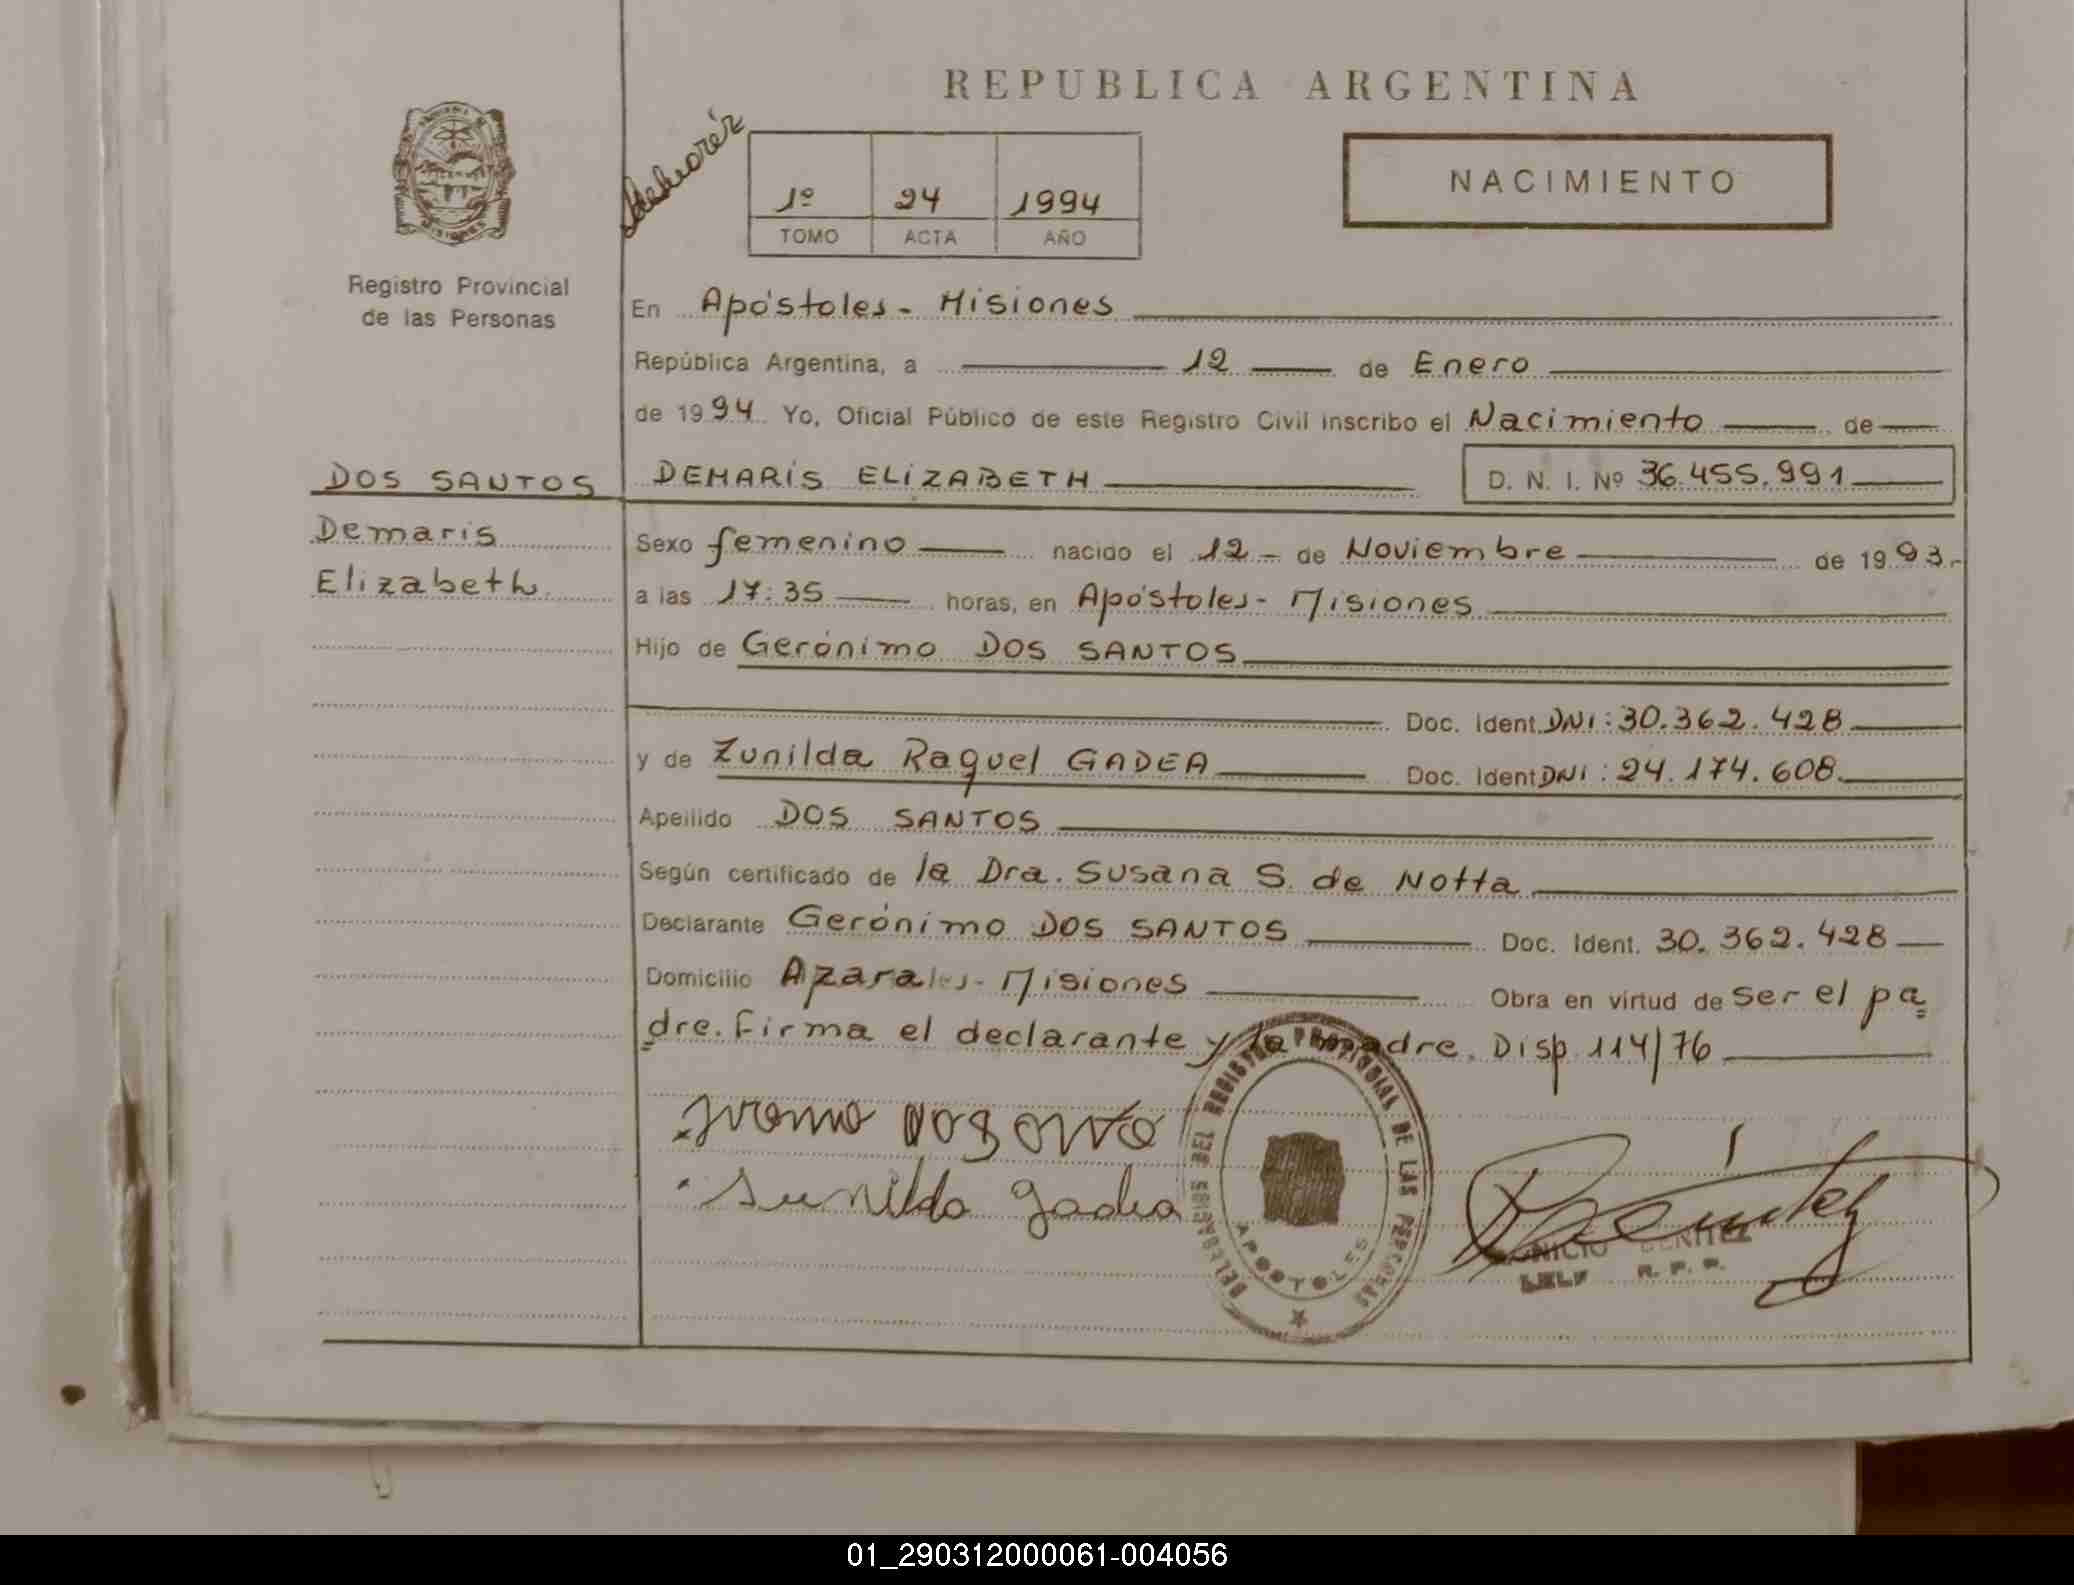 REPUBLICA ARGENTINA
NACIMIENTO
1º 24 1994
TOMO ACTA AÑO
Registro Provincial
de las Personas
En Apóstoles - Misiones
República Argentina, a 12 de Enero
de 1994 Yo, Oficial Público de este Registro Civil inscribo el Nacimiento de
DOS SANTOS DEMARIS ELIZABETH D. N. I. Nº 36.455.991
Demaris
Elizabeth.
Sexo femenino nacido el 12 - de Noviembre de 1993.-
a las 17:35 horas, en Apóstoles - Misiones
Hijo de Gerónimo DOS SANTOS
Doc. Ident. DNI: 30.362.428
y de Zunilda Raquel GADEA Doc. Ident DNI: 24.174.608.
Apellido DOS SANTOS
Según certificado de la Dra. Susana S. de Notta
Declarante Gerónimo DOS SANTOS Doc. Ident. 30.362.428
Domicilio Misiones Obra en virtud de ser el pa
dre. Firma el declarante y la madre. Disp. 114/76
DELEGACION DEL REGISTRO PROVINCIAL DE LAS PERSONAS
APOSTOLES
BENITEZ
R. P. P.
01_290312000061-004056